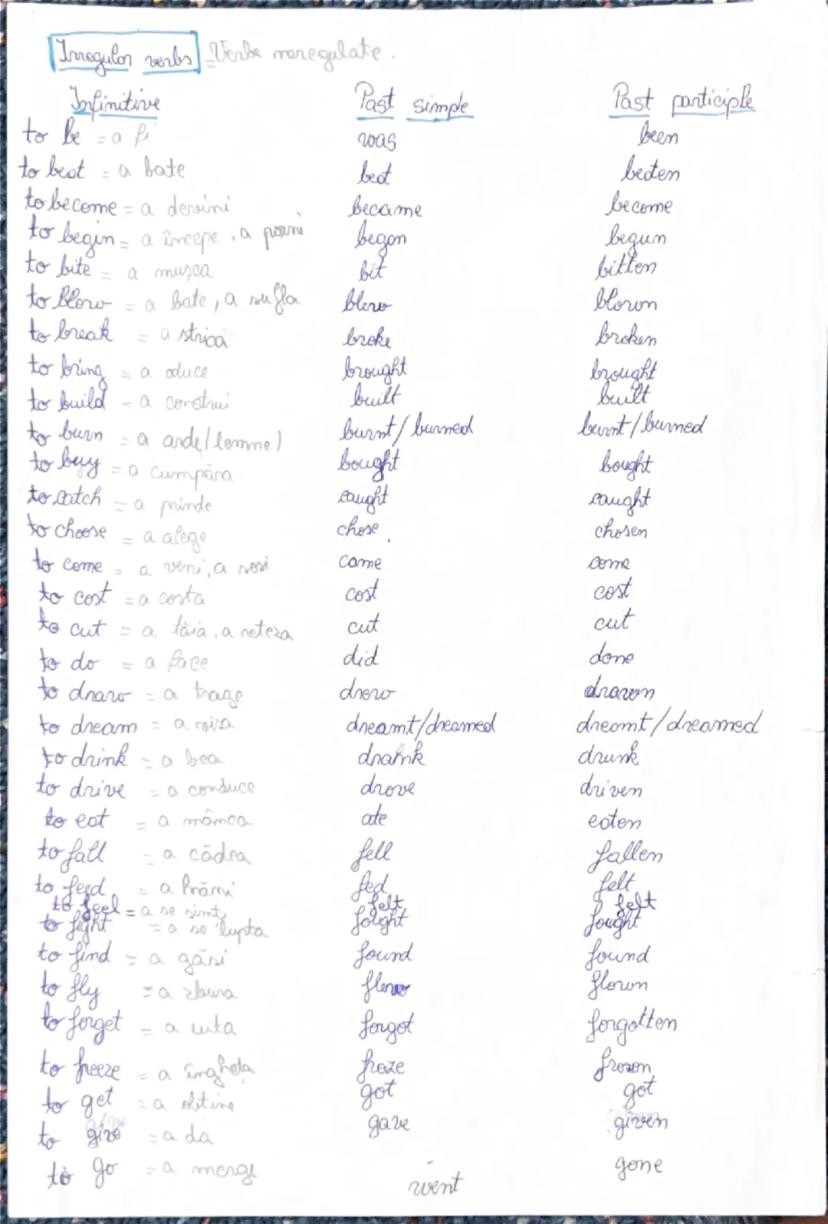 Irregular verbs = Verbe neregulate.
Infinitive Past simple Past participle
to be = a fi was been
to beat = a bate beat beaten
to become = a deveni became become
to begin = a începe, a porni began begun
to bite = a mușca bit bitten
to blow = a bate, a sufla blew blown
to break = a strica broke broken
to bring = a aduce brought brought
to build = a construi built built
to burn = a arde (lemne) burnt/burned burnt/burned
to buy = a cumpăra bought bought
to catch = a prinde caught caught
to choose = a alege chose chosen
to come = a veni, a sosi came come
to cost = a costa cost cost
to cut = a tăia, a reteza cut cut
to do = a face did done
to draw = a trage drew drawn
to dream = a visa dreamt/dreamed dreamt/dreamed
to drink = a bea drank drunk
to drive = a conduce drove driven
to eat = a mânca ate eaten
to fall = a cădea fell fallen
to feed = a hrăni fed felt
to feel = a se simți felt felt
to fight = a se lupta fought fought
to find = a găsi found found
to fly = a zbura flew flown
to forget = a uita forgot forgotten
to freeze = a îngheța froze frozen
to get = a obține got got
to give = a da gave given
to go = a merge went gone